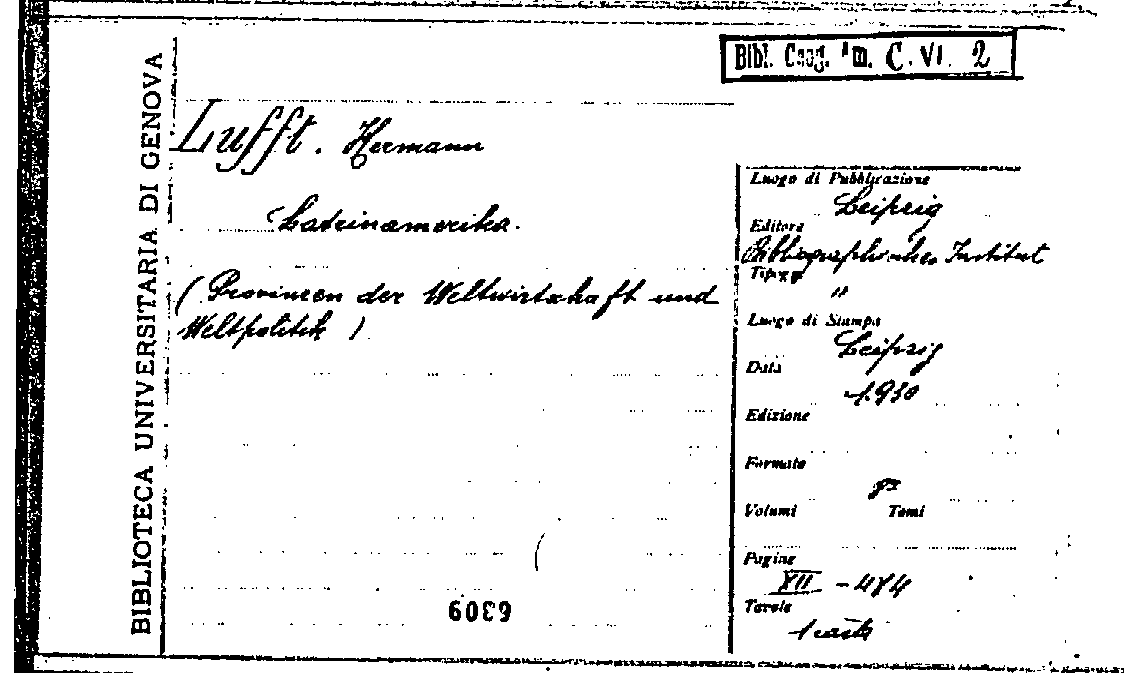 Bibl. Geog. Am. C. VI. 2
BIBLIOTECA UNIVERSITARIA DI GENOVA
Lufft. Hermann
Lateinamerika.
(Provinzen der Weltwirtschaft und
Weltpolitik)
6309
Luogo di Pubblicazione
Leipzig
Editore
Bibliographisches Institut
Tipogr.
"
Luogo di Stampa
Leipzig
Data
1930
Edizione
Formato
8º
Volumi Tomi
Pagine
XII - 484
Tavole
1 carta